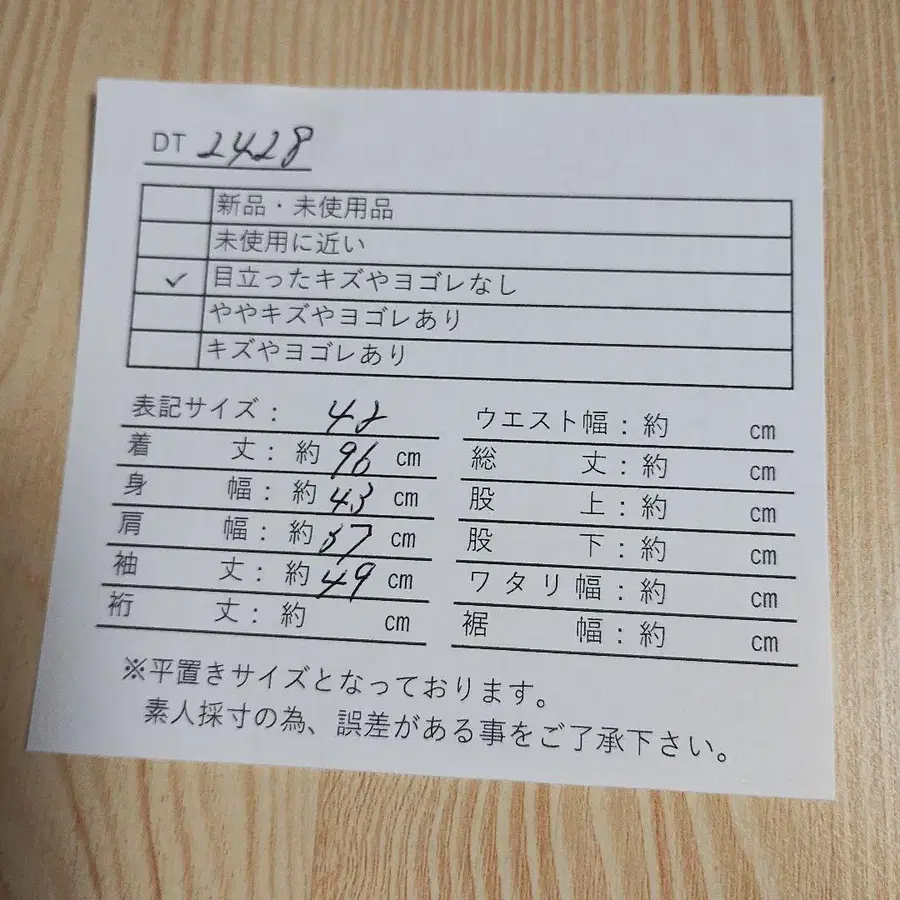 DT 2428
新品・未使用品
未使用に近い
✓ 目立ったキズやヨゴレなし
ややキズやヨゴレあり
キズやヨゴレあり
表記サイズ： 42
着丈：約 96 cm
身幅：約 43 cm
肩幅：約 37 cm
袖丈：約 49 cm
裄丈：約 cm
ウエスト幅：約 cm
総丈：約 cm
股上：約 cm
股下：約 cm
ワタリ幅：約 cm
裾幅：約 cm
※平置きサイズとなっております。
素人採寸の為、誤差がある事をご了承下さい。